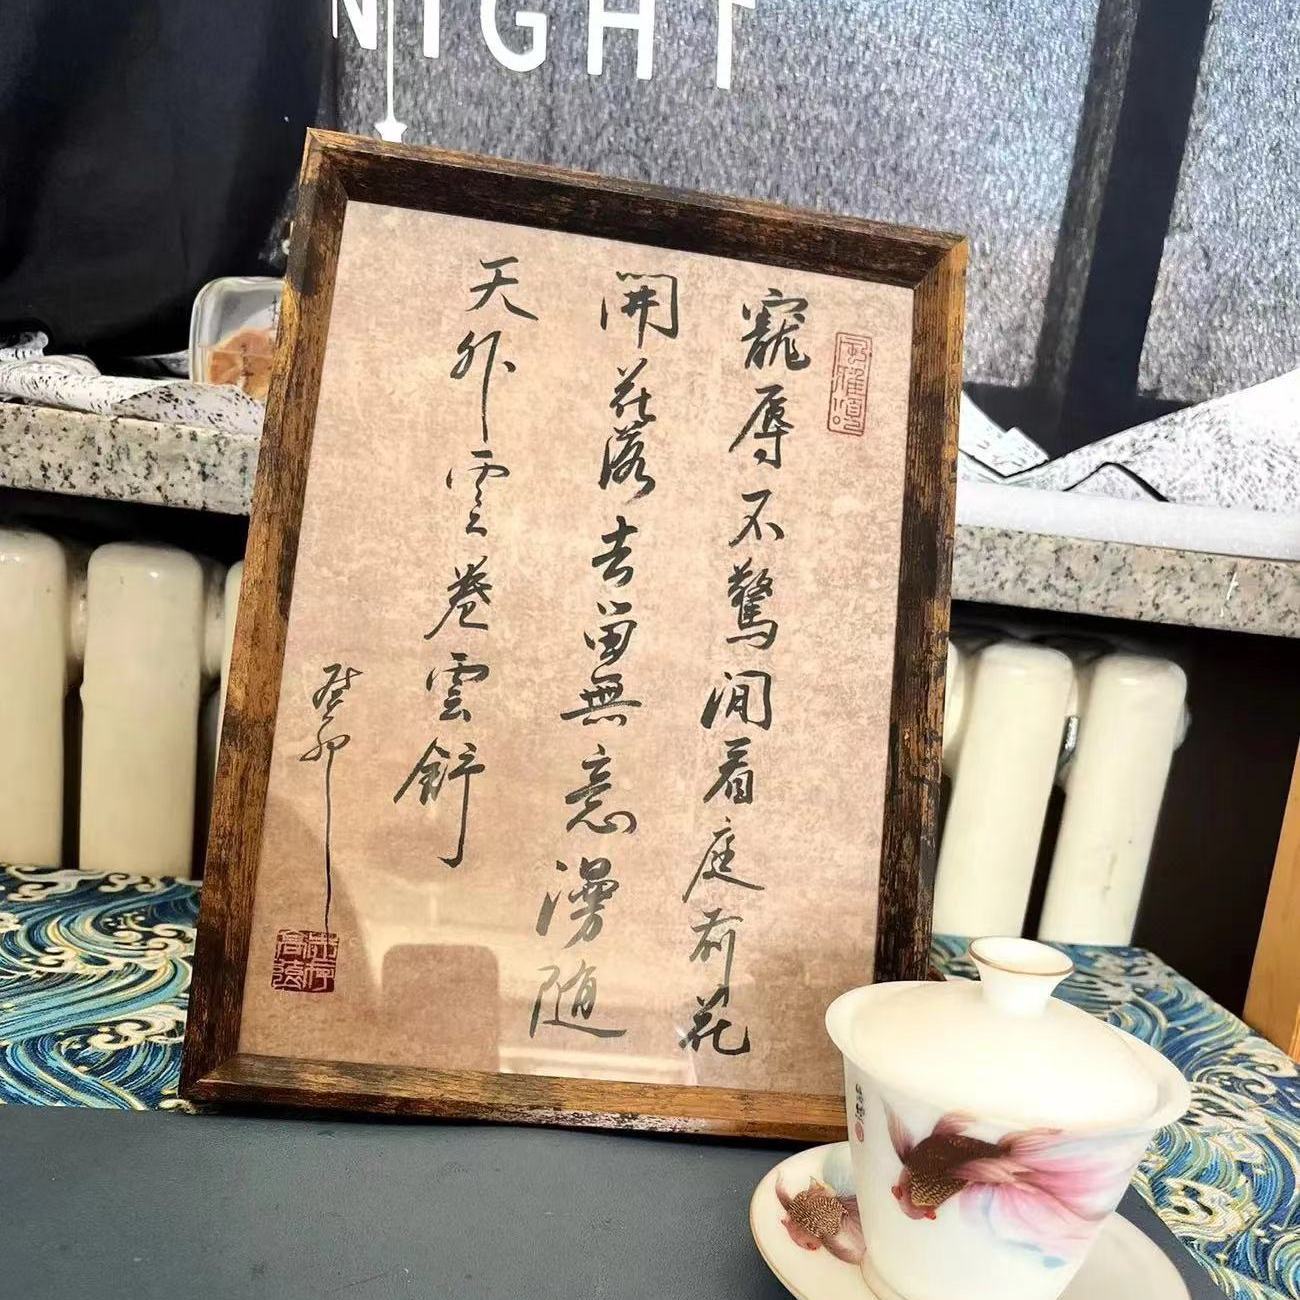 NIGHT
寵辱不驚閒看庭前花
開花落去留無意漫随
天外雲卷雲舒
癸卯